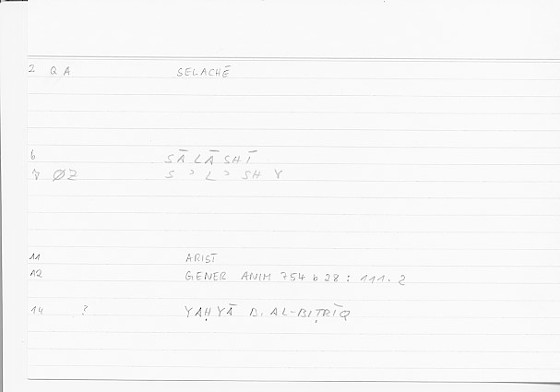 2 QA SELACHĒ
6 SĀLĀSHĪ
7 ØZ S ᵓ L ᵓ SH Y
11 ARIST
12 GENER ANIM 754 b 28 : 111. 2
14 ? YAḤYĀ B. AL-BIṬRĪQ